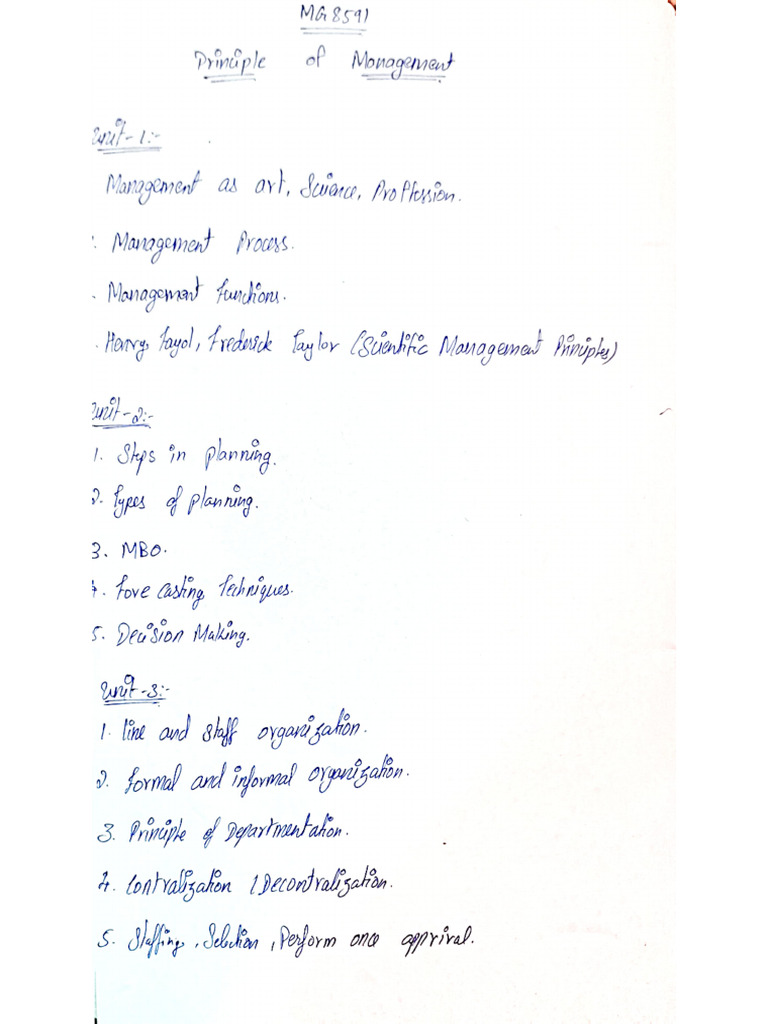 MG8591
Principle of Management
Unit-1:-
Management as art, Science, Proffession.
. Management Process.
. Management functions.
. Henry Fayol, Frederick Taylor (Scientific Management Principles)
Unit-2:-
1. Steps in planning.
2. Types of planning.
3. MBO.
4. Fore casting Techniques.
5. Decision Making.
Unit-3:-
1. line and staff organization.
2. formal and informal organization.
3. Principle of Departmentation.
4. Contralization / Decontralization.
5. Staffing, Selection, Perform ance apprival.